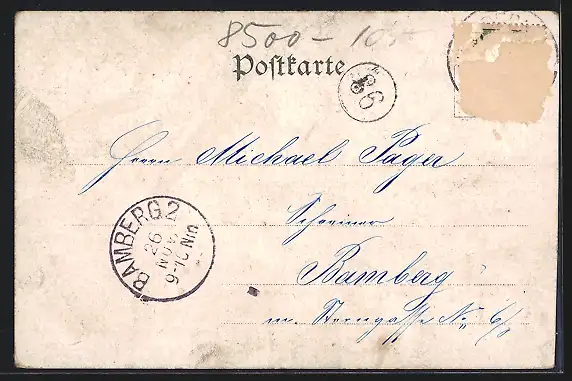 8500 - 10.-
Postkarte
86
Herrn Michael Pager
Schreiner
Bamberg
m. Sterngasse No. 6/0
BAMBERG.2
26
NOV
9-10 Nm